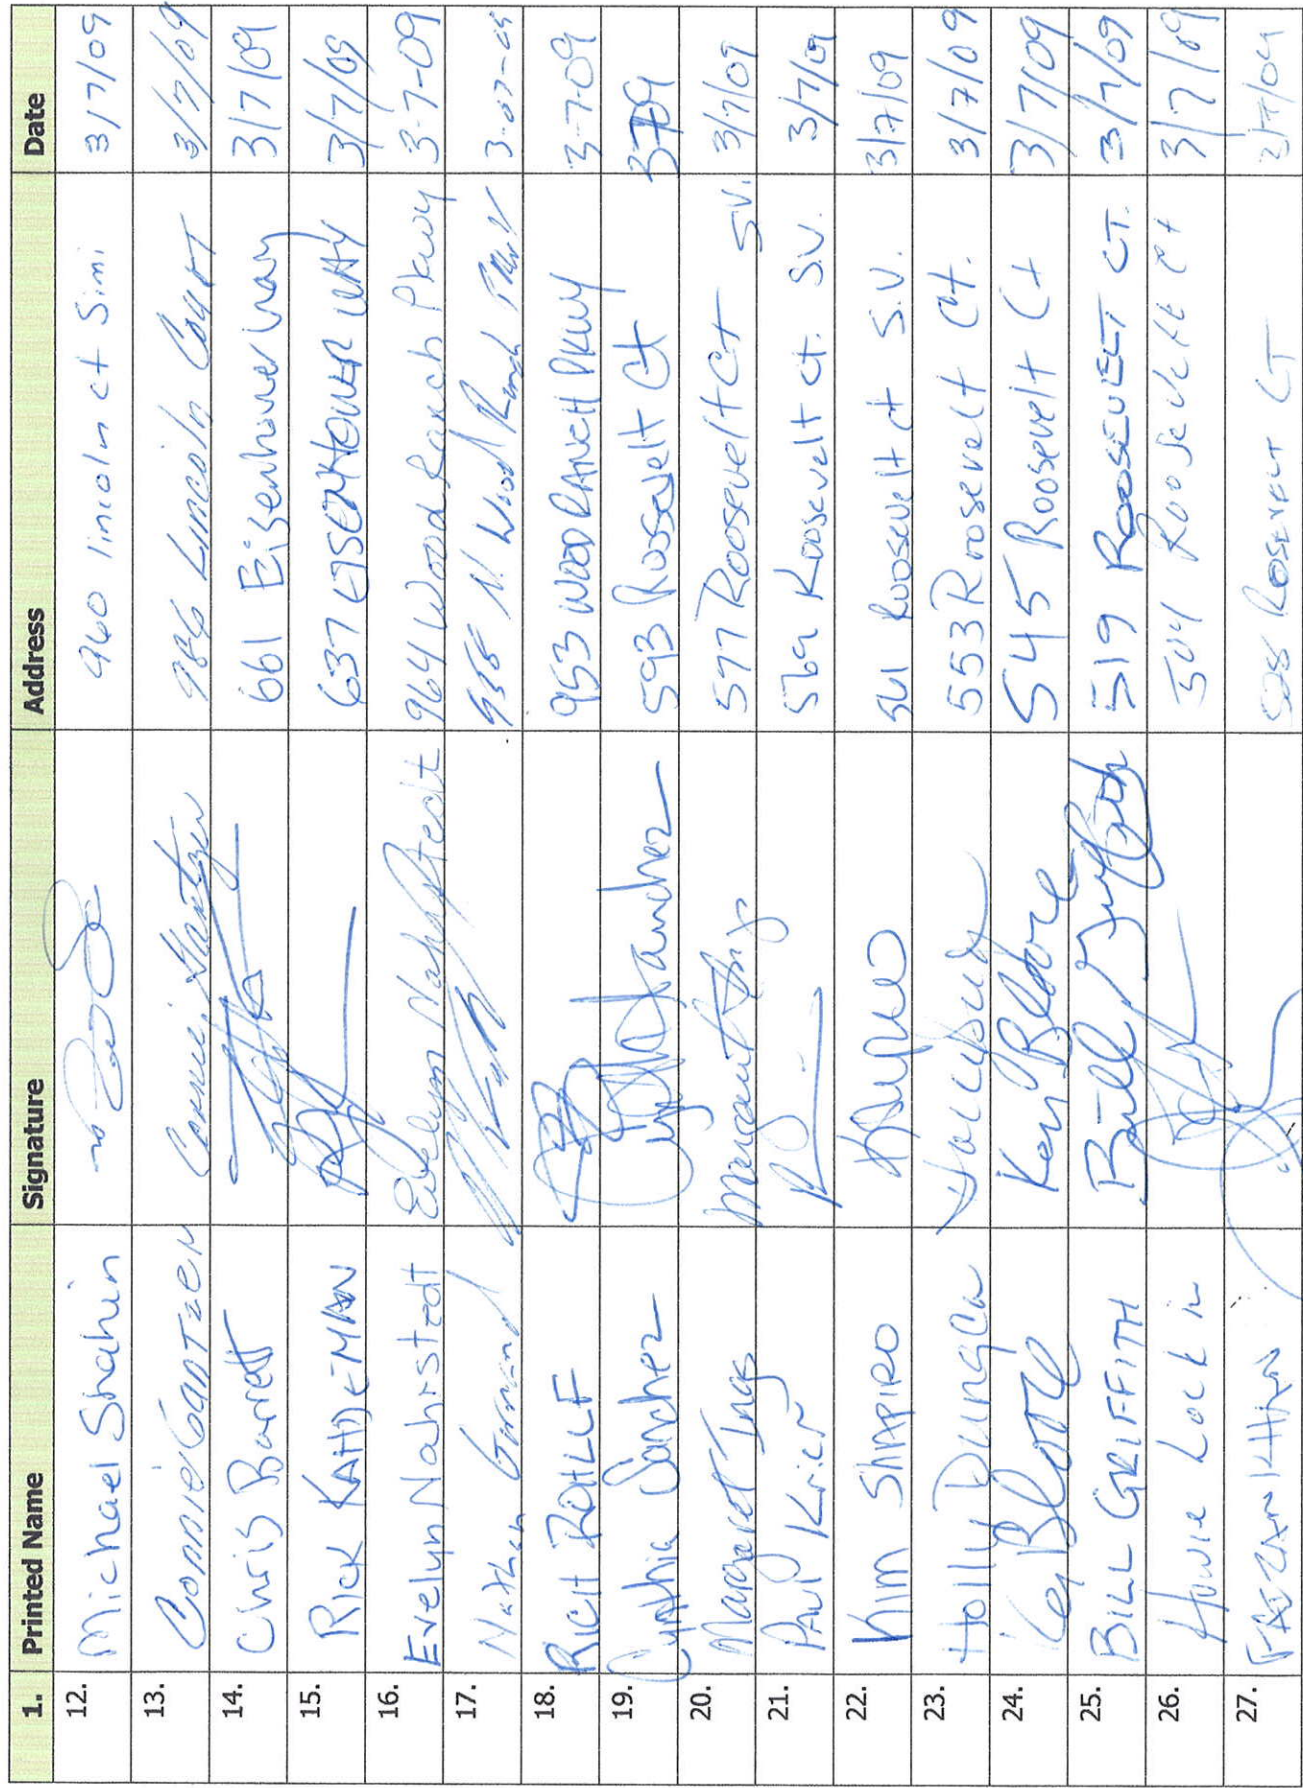 1. Printed Name Signature Address Date
12. Michael Shahin 960 lincoln ct Simi 3/7/09
13. Connie Gantzer Connie Gantzer 986 Lincoln Court 3/7/09
14. Chris Barrett 661 Eisenhower way 3/7/09
15. RICK KAHDEMAN 637 EISENHOWER WAY 3/7/09
16. Evelyn Nahrstedt Evelyn Nahrstedt 964 Wood Ranch Pkwy 3-7-09
17. Nathan N. Wood Ranch 3-07-09
18. RICH ROHLF 953 WOOD RANCH PKWY 3-7-09
19. Cynthia Sanchez Cynthia Sanchez 593 Roosevelt Ct 3-7-09
20. Margaret Ings Margaret Ings 577 Roosevelt Ct S.V. 3/7/09
21. Paul Krier 569 Roosevelt Ct. S.V. 3/7/09
22. KIM SHAPIRO 561 Roosevelt ct S.V. 3/7/09
23. Holly Dunga 553 Roosevelt Ct. 3/7/09
24. Ken Blore Ken Blore 545 Roosevelt Ct 3/7/09
25. BILL GRIFFITH Bill Griffith 519 ROOSEVELT CT. 3/7/09
26. Howie Lock in 504 Roosevelt Ct 3/7/09
27. FAIZAN KHAN CT 3/7/09